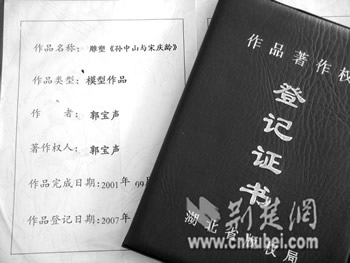 作品名称：雕塑《孙中山与宋庆龄》
作品类型：模型作品
作 者：郭宝声
著作权人：郭宝声
作品完成日期：2001年 09
作品登记日期：2007年
作品著作权
登记证书
湖北省版权局
荆楚網
www.cnhubei.com